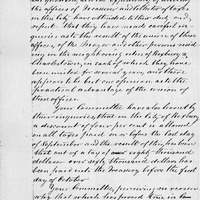 offices of Treasurer and Collector of taxes,
in this City, have attended to that duty, and
report. That they have made careful in-
quiries as to the result of the union of these
offices, of the Mayor and other persons resid-
ing in the neighboring cities of Roxbury &
Charlestown, in each of which they have
been united for several years, and there
appears to be but one opinion as to the
practical advantage of the union of
these offices.
Your Committee have also learned by
their inquiries, that in the City of Roxbury
a discount of four per cent is allowed
on all taxes paid on or before the last day
of September and the result of this has been
that out of a tax of over eighty thousand
dollars over sixty thousand dollars has
been paid into the treasury before the first
day of October.
Your Committee perceiving no reason
why that which has proved true in